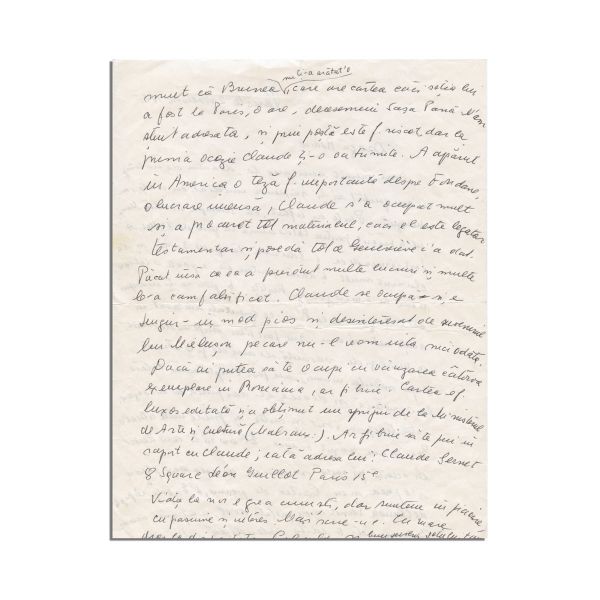 nu ți-a arătat'o
mult că Brunea, care are cartea căci soția lui
a fost la Paris, o are, deasemeni Sașa Pană. N'am
știut adresata, și prin poștă este f. riscat dar la
prima ocazie Claude ți-o va trimite. A apărut
în America o teză f. importantă despre Fondane,
o lucrare imensă, Claude s'a ocupat mult
și a procurat tot materialul, căci el este legatar
testamentar și posedă tot ce Geneviève i'a dat.
Păcat însă ca ea a pierdut multe lucruri și multe
le-a cam falsificat. Claude se ocupa și e
singur în mod pios și desinteresat de
lui Melușon pe care nu-l vom uita niciodată.
Dacă ai putea să te ocupi cu vânzarea câtorva
exemplare in România, ar fi bine. Cartea e f.
luxos editată și a obținut un sprijin de la Ministerul
de Arte și Cultură (Malraux). Ar fi bine să te pui în
raport cu Claude; iată adresa lui: Claude Sernet
8 Square Léon Guillot Paris 15e
Viața la noi e grea cumsti, dar suntem în picioare,
cu pasiune și interes Mari. Cu mare